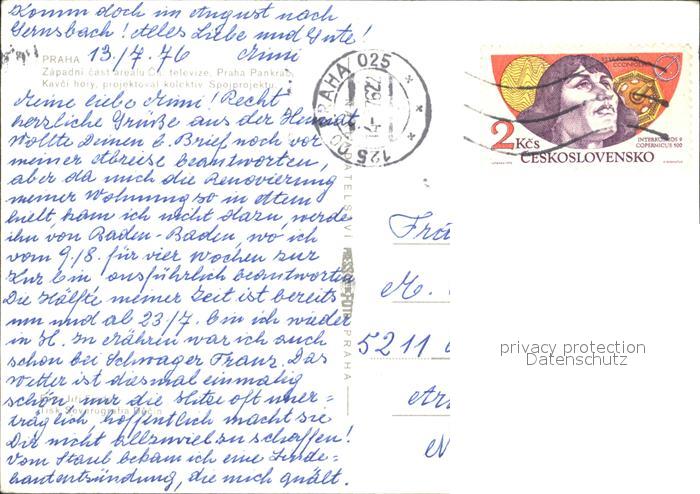 Komm doch im August nach
Gernsbach! Alles Liebe und Gute!
13./7.76 Mimi
PRAHA
Západní část areálu Čs. televize, Praha Pankrác,
Kavčí hory, projektoval kolektiv Spojprojektu
Meine liebe Mimi! Recht
herzliche Grüße aus der Heimat
Wollte Deinen l. Brief noch vor
meiner Abreise beantworten,
aber da mich die Renovierung
meiner Wohnung so in Atem
hielt kam ich nicht dazu, werde
ihn von Baden-Baden, wo ich
vom 9./8. für vier Wochen zur
Kur bin ausführlich beantworten
Die Hälfte meiner Zeit ist bereits
um und ab 23/7. bin ich wieder
in H. In Mähren war ich auch
schon bei Schwager Franz. Das
Wetter ist diesmal einmalig
schön, nur die Hitze oft uner=
träglich, hoffentlich macht sie
Dir nicht allzuviel zu schaffen!
Vom Staub bekam ich eine Binde-
hautentzündung, die mich quält.
Tisk Severografia Děčín
PRAHA 025
125 00 PRAHA
PRESSFOTO PRAHA
2 Kčs
INTERKOSMOS
COPERNICUS 500
ČESKOSLOVENSKO
M.
5211
privacy protection
Datenschutz